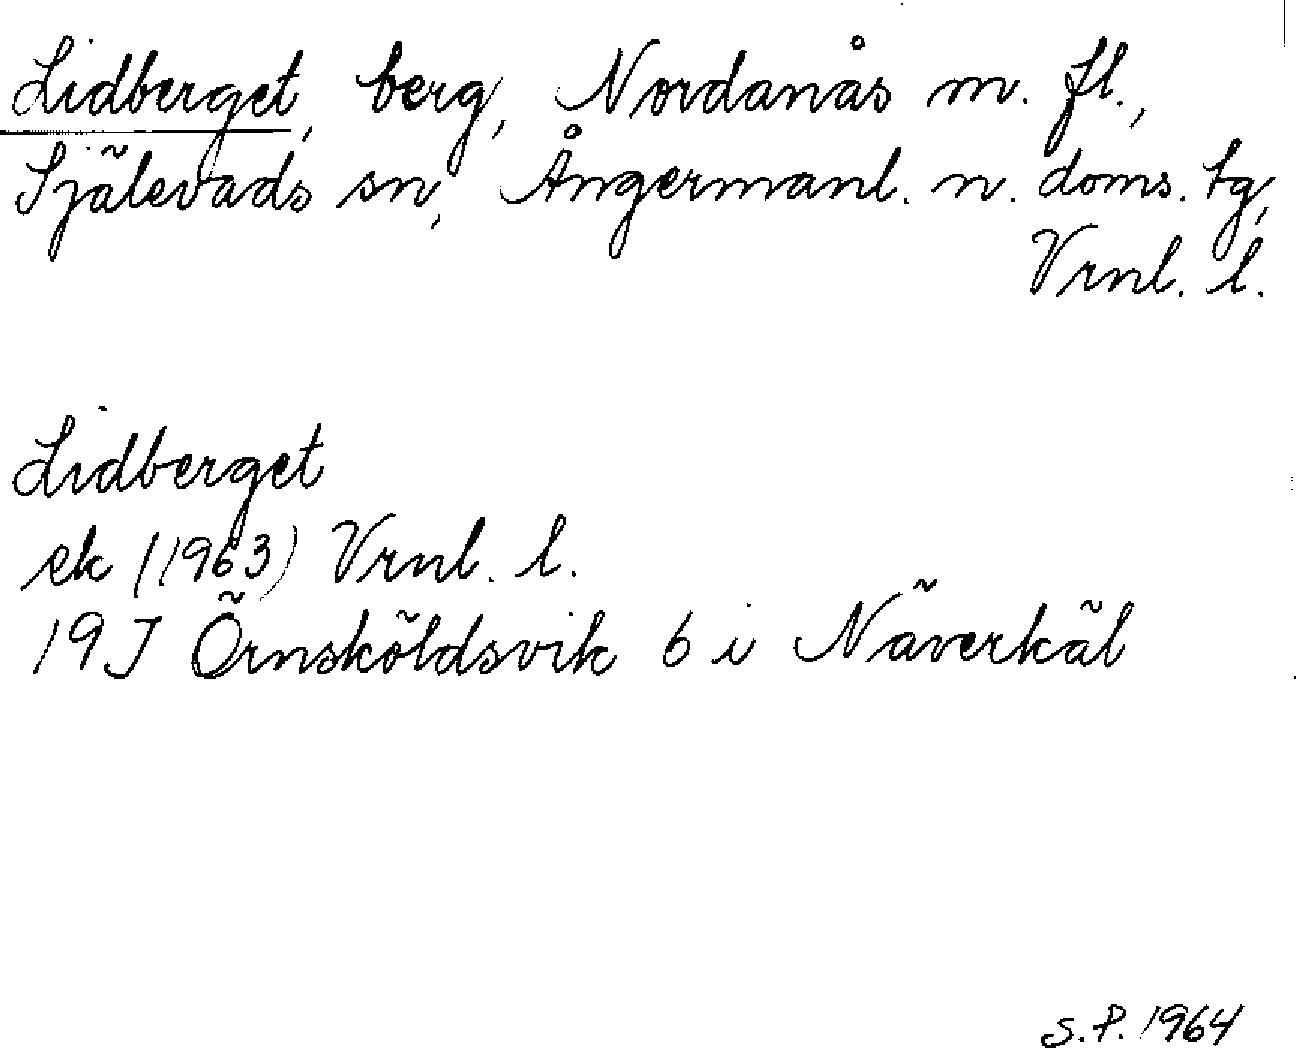 Lidberget, berg, Nordanås m. fl.,
Själevads sn, Ångermanl. n. doms. tg,
Vrnl. l.
Lidberget
ek (1963) Vrnl. l.
19J Örnsköldsvik 6 i Näverkäl
S.P. 1964